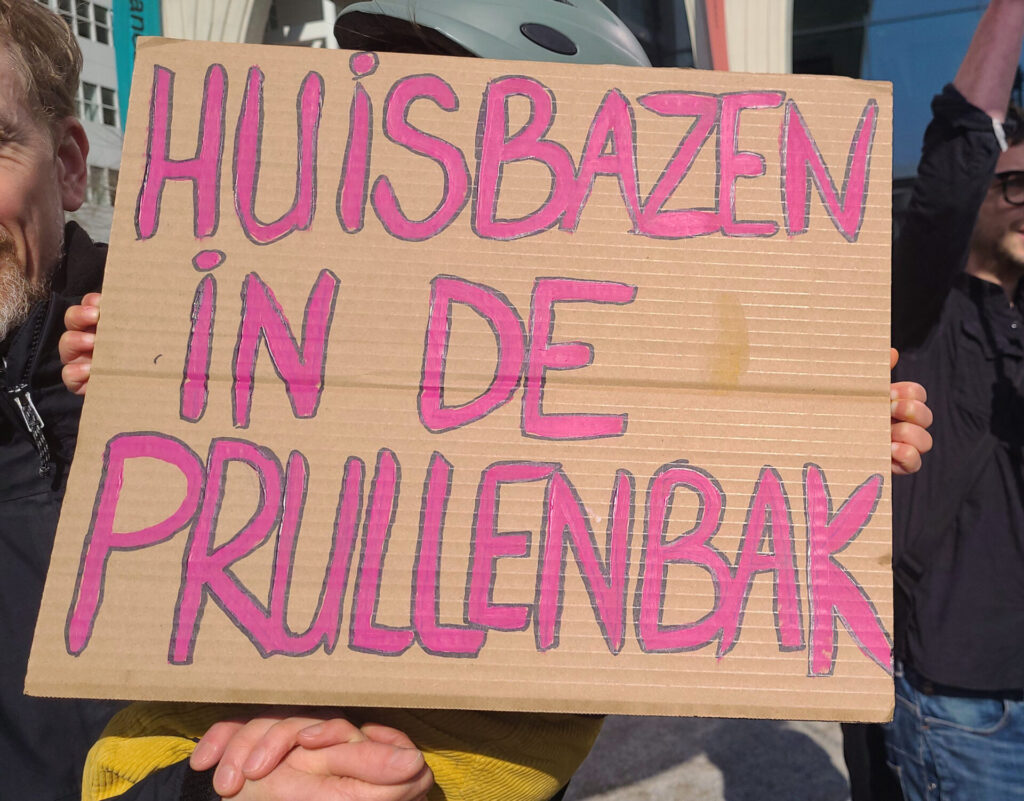 HUiSBAZEN
iN DE
PRULLENBAK